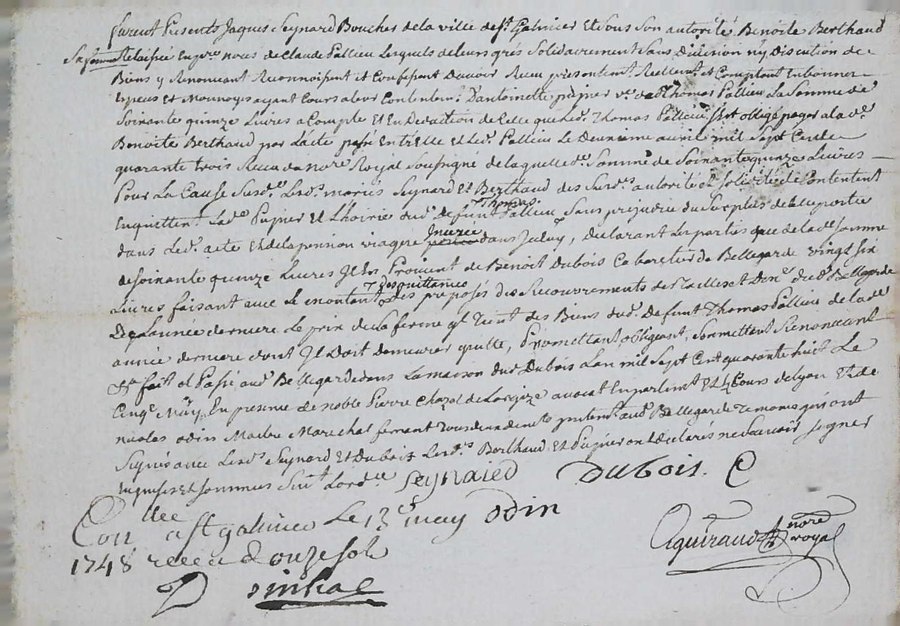 furent presents Jaques Seynard Boucher de la ville de St Galmier Et sous son autorité Benoite Berthaud
Sa femme relaissée En pres noces de Claude Pallieu Lesquels de leurs grés Solidairement Sans Division ny Discution de
Biens y Renonçant Reconnoissent et Confessent Davoir Receu presentemt Reellemt et Comptant En bonnes
Especes et Monnoys ayant Cours a leur Contentemt D'antoinette pupier ve de Thomas Pallieu La Somme de
Soixante quinze Livres a Compte et En Deduction de Celle que Led Thomas Pallieu S'est obligé payer a la de
Benoite Berthaud par L'acte passé Entr'Elle et Led Pallieu Le Deuxieme avril mil Sept Cent
quarante trois Receu du nore Royal Soussigné de laquelle de Somme de Soixante quinze Livres
Pour La Cause Susde Lesds mariés Seynard Et Berthaud des Surds autorité et Solidité Se Contentent
En quittent Lade Pupier et L'hoirie dud defunt Thomas Pallieu Sans prejudice du Surplus de la portée
dans Led acte Et de la pension viagere Inseree dans Iceluy, Declarant Les parties que de lade Somme
de Soixante quinze Livres Il En Provient de Benoit Dubois Cabaretier de Bellegarde vingt Six
Livres faisant avec Le montant des quittances des preposés des Recouvrements des Tailles et Dixme dud Bellegarde
De L'année derniere Le prix de La ferme qu'il Tient des Biens dud defunt Thomas Pallieu de lade
année derniere dont Il Doit Demeurer quitte, Promettant obligeant, Soumettant Renonçant
&c fait et Passé aud Bellegarde dans La maison dud Dubois L'an mil Sept Cent quarante huit Le
Cinqe May, En presence de noble Pierre Chazal de avocat En parlemt Et Cours de Lyon Et de
nicolas odin Maitre Marechal ferrant presentemt aud Bellegarde Temoins qui ont
Signés avec Lesds Seynard Et Dubois Lesds Berthaud Et Pupier ont Declarés ne Scavoir Signer
Enquises Et Sommées Suivt Lordce Seynaied DUBois. C
Conllee a St galmier Le 13e may odin
1748 receu douze sols
Aguiraud nore royal